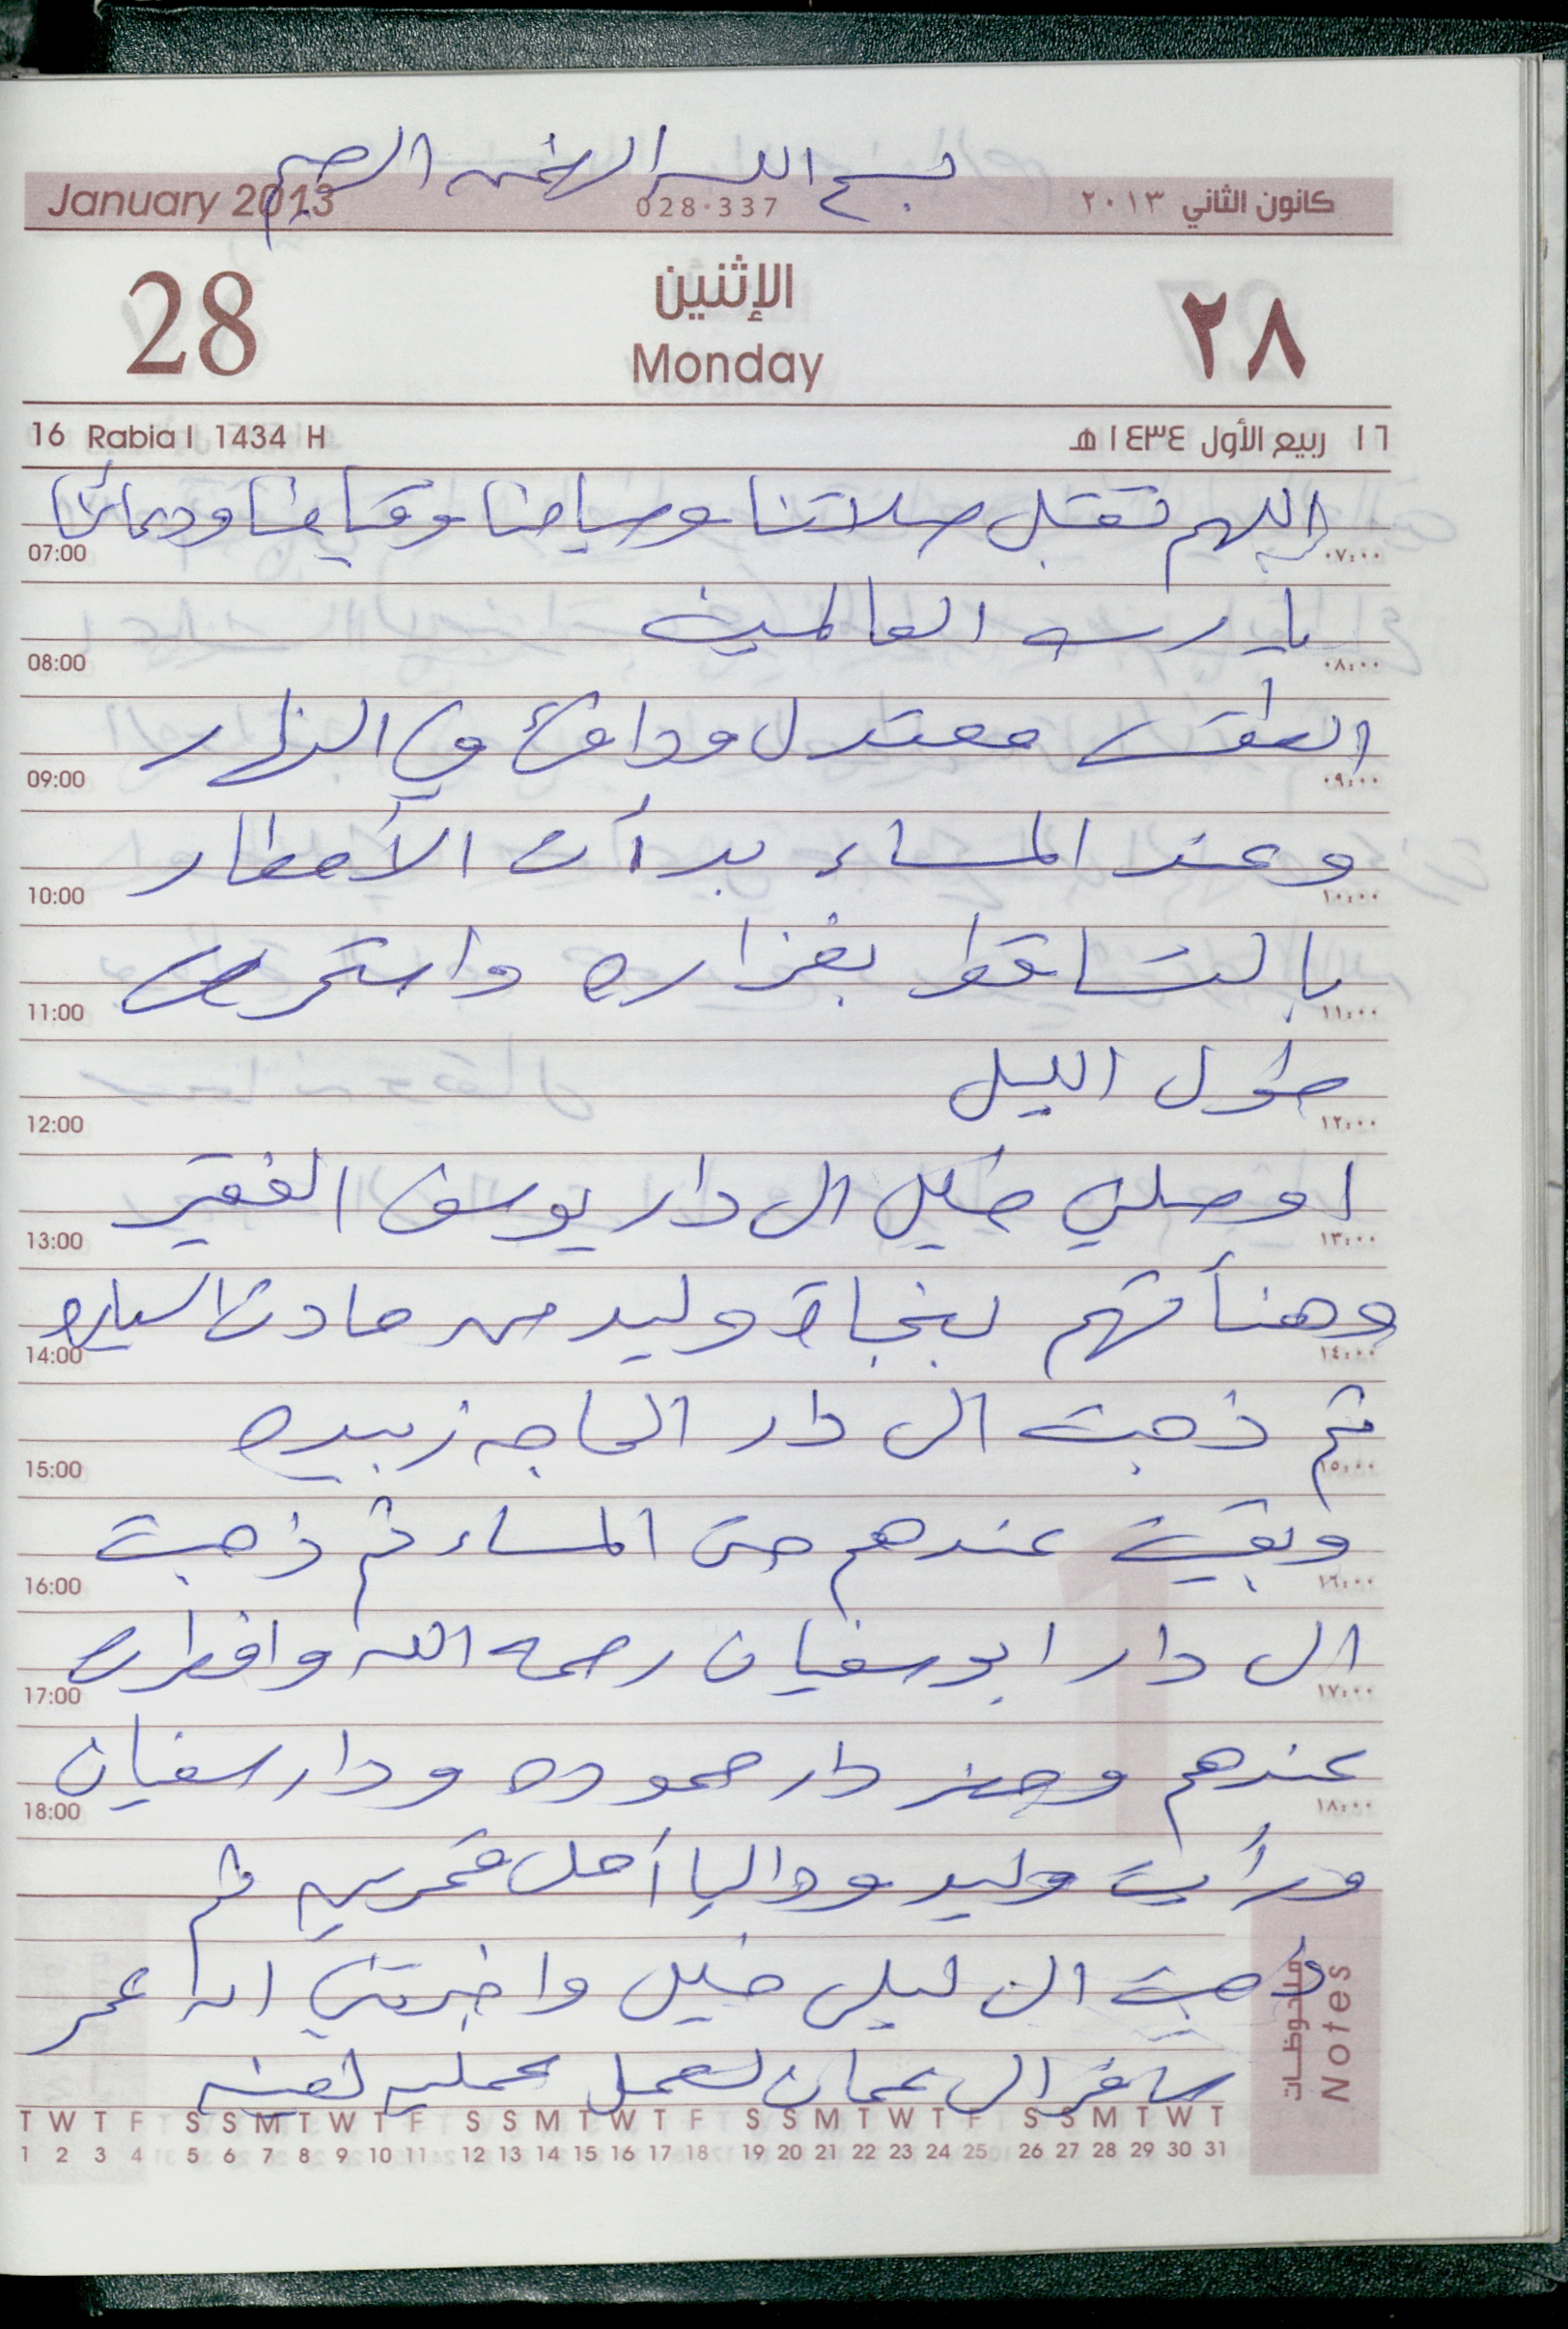 بسم الله الرحمن الرحيم
January 2013 028·337 كانون الثاني ٢٠١٣
28 الإثنين ٢٨
Monday
16 Rabia I 1434 H ١٦ ربيع الأول ١٤٣٤ هـ
اللهم تقبل صلاتنا وصيامنا وقيامنا ودعائنا
07:00 ٠٧:٠٠
يا رب العالمين
08:00 ٠٨:٠٠
الطقس معتدل ودافئ في النهار
09:00 ٠٩:٠٠
وعند المساء بدأت الأمطار
10:00 ١٠:٠٠
بالتساقط بغزاره واستمرت
11:00 ١١:٠٠
طول الليل
12:00 ١٢:٠٠
اوصلني خليل الى دار يوسف الفقير
13:00 ١٣:٠٠
وهنأتهم بنجاة وليد من حادث السياره
14:00 ١٤:٠٠
ثم ذهبت الى دار الحاجه زبيده
15:00 ١٥:٠٠
وبقيت عندهم حتى المساء ثم ذهبت
16:00 ١٦:٠٠
الى دار ابو سفيان رحمه الله وافطرت
17:00 ١٧:٠٠
عندهم وحضر دار حموده ودار سفيان
18:00 ١٨:٠٠
ورأيت وليد وداليا أهل قمرين ثم
ذهبت الى ليلى خليل واخبرتني ان عمر
سافر الى عمان لعمل عمليه لعينه
ملاحوظات Notes
T W T F S S M T W T F S S M T W T F S S M T W T F S S M T W T
1 2 3 4 5 6 7 8 9 10 11 12 13 14 15 16 17 18 19 20 21 22 23 24 25 26 27 28 29 30 31